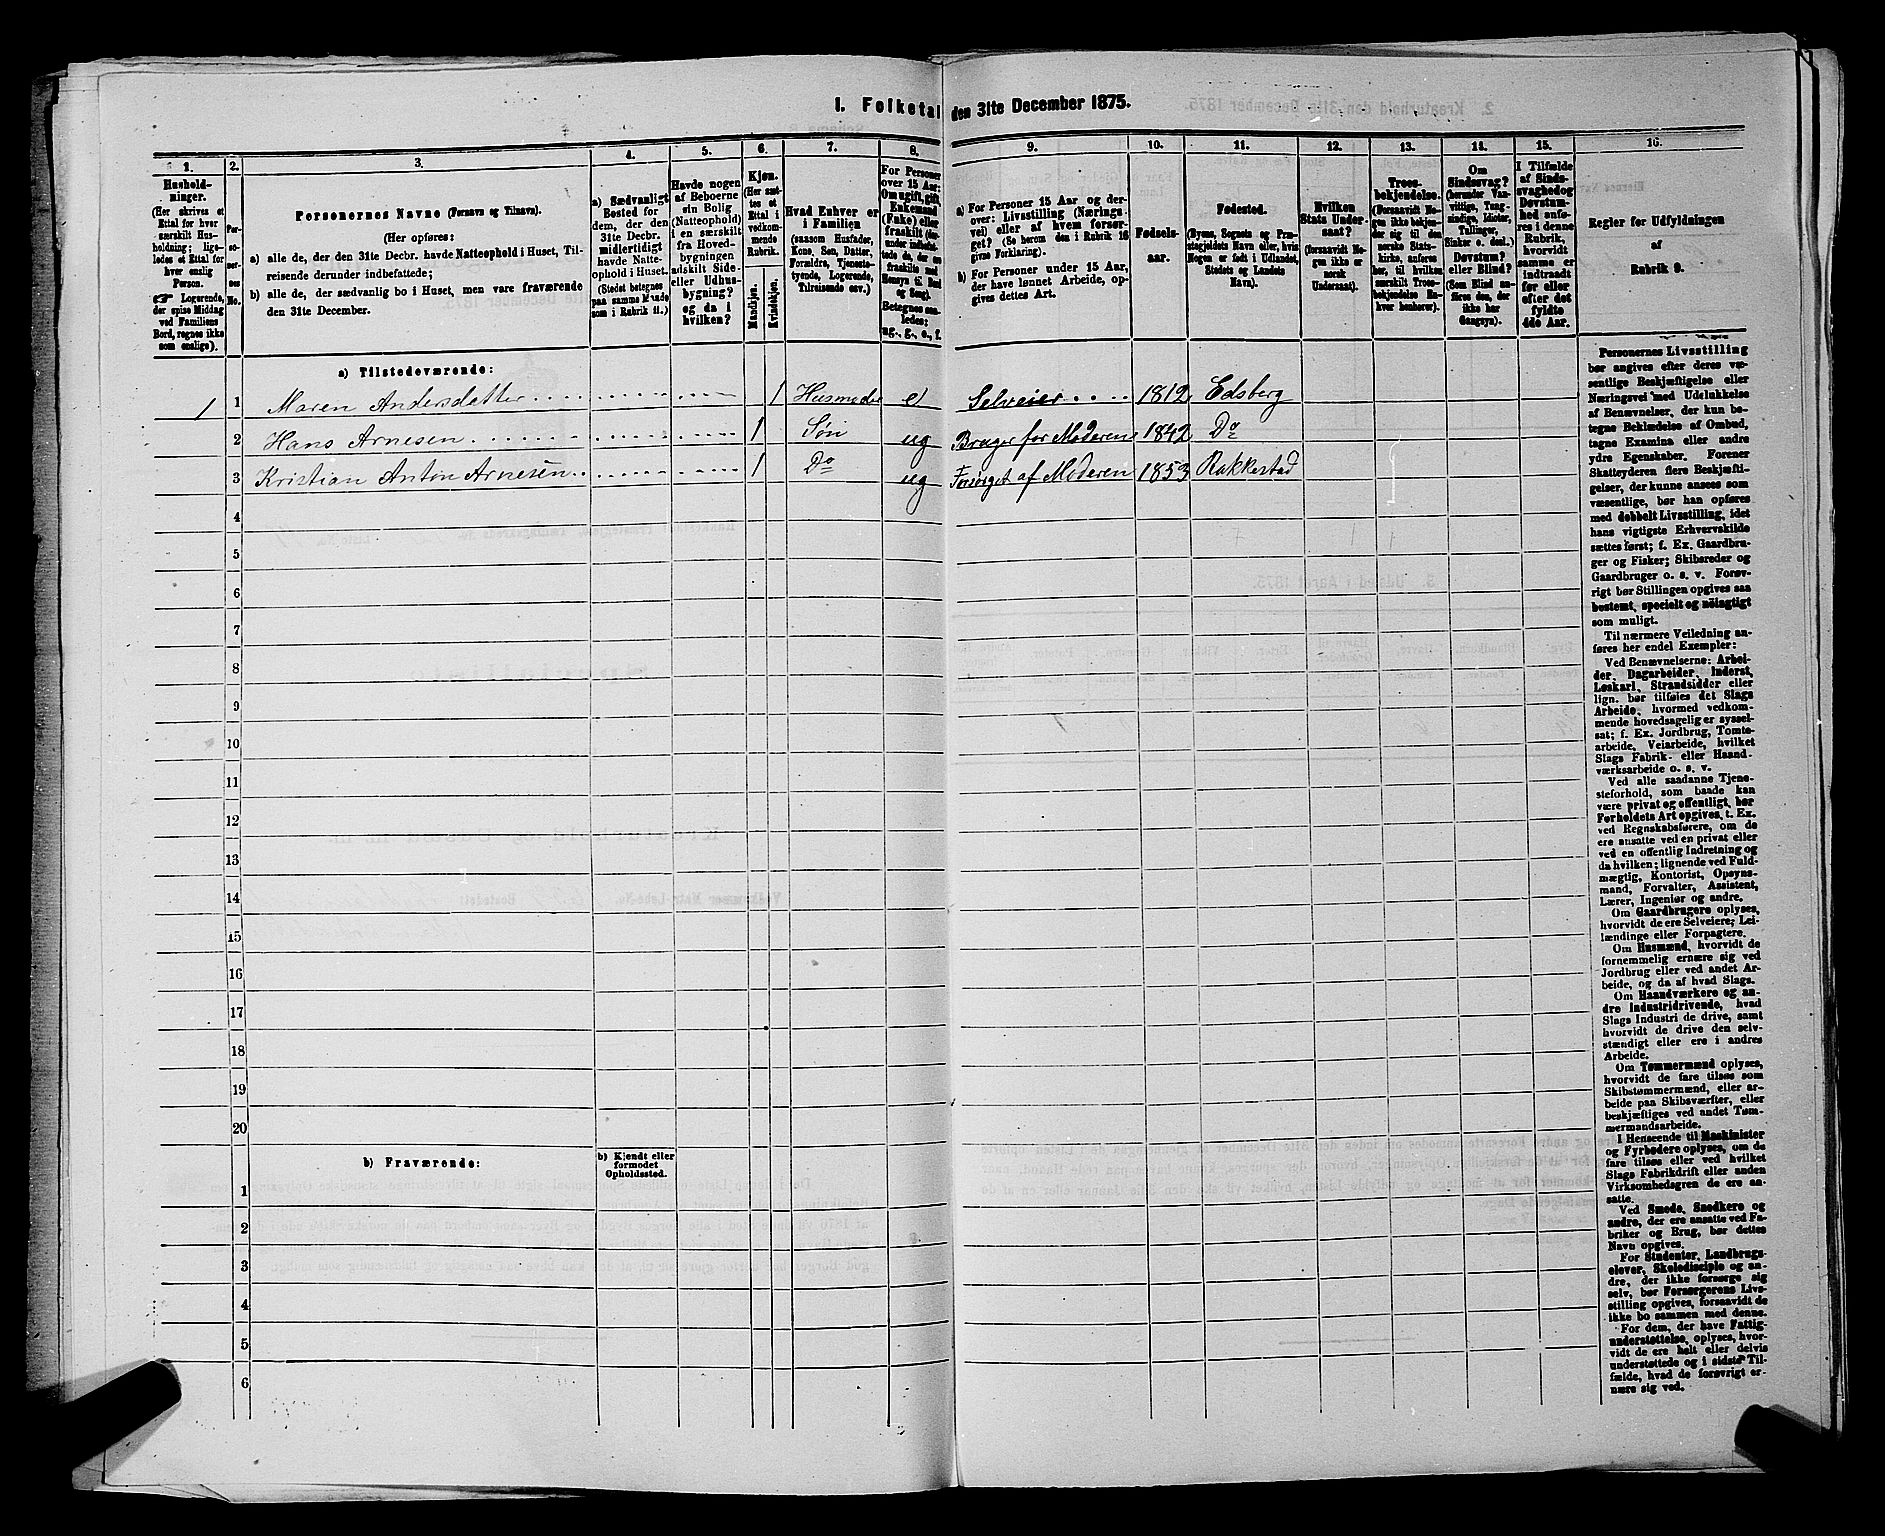 I. Folketal den 31te December 1875.
1. 2. 3. 4. 5. 6. 7. 8. 9. 10. 11. 12. 13. 14. 15. 16.
Hushold-
ninger.
(Her skrives et
Ettal for hver
særskilt Hus-
holdning; lige-
ledes et Ettal for
hver enslig
Person.
☞ Logerende,
der spise Middag
ved Familiens
Bord, regnes ikke
som enslige).
Per-
so-
ner-
nes
No.
Personernes Navne (Fornavn og Tilnavn).
(Her opføres:
a) alle de, der den 31te Decbr. havde Natteophold i Huset, Til-
reisende derunder indbefattede;
b) alle de, der sædvanlig bo i Huset, men vare fraværende
den 31te December.
a) Sædvanligt
Bosted for
dem, der den
31te Decbr.
midlertidigt
havde Natte-
ophold i Huset.
(Stedet betegnes
paa samme Maade
som i Rubrik 11.)
Havde nogen
af Beboerne
sin Bolig
(Natteophold)
i en særskilt
fra Hoved-
bygningen
adskilt Side-
eller Udhus-
bygning?
og da i
hvilken?
Kjøn.
(Her sæt-
tes et
Ettal i
vedkom-
mende
Rubrik.
Mandkjøn.
Kvindekjøn.
Hvad Enhver er
i Familien
(saasom Husfader,
Kone, Søn, Datter,
Forældre, Tjeneste-
tyende, Logerende,
Tilreisende osv.)
For Personer
over 15 Aar:
Om ugift, gift,
Enkemand
(Enke) eller
fraskilt (der-
under indbefat-
tede de, der ere
fraskilte med
Hensyn til Bord
og Seng).
Betegnes saa-
ledes:
ug., g., e., f.
a) For Personer 15 Aar og der-
over: Livsstilling (Nærings-
vei) eller af hvem forsør-
get? (Se herom den i Rubrik 16
givne Forklaring).
b) For Personer under 15 Aar,
der have lønnet Arbeide, op-
gives dettes Art.
Fødsels-
aar.
Fødested.
(Byens, Sognets og Præ-
stegjeldets Navn eller, hvis
Nogen er født i Udlandet,
Stedets og Landets
Navn).
Hvilken
Stats Under-
saat?
(forsaavidt No-
gen ikke er
norsk
Undersaat).
Troes-
bekjendelse.
(Forsaavidt No-
gen ikke bekjen-
der sig til den
norske Stats-
kirke, anføres
her, til hvilken
særskilt Troes-
bekjendelse En-
hver henhører).
Om
Sindssvag?
(herunder Van-
vittige, Tung-
sindige, Idioter,
Tullinger,
Sinker o. desl.)
Døvstum?
eller Blind?
(Som Blind an-
føres den, der
ikke har
Gangsyn).
I Tilfælde
af Sinds-
svaghed og
Døvstum-
hed anfø-
res i denne
Rubrik,
hvorvidt
samme er
indtraadt
før eller
efter det
fyldte
4de Aar.
Regler for Udfyldningen
af
Rubrik 9.
a) Tilstedeværende:
1 1 Maren Andersdatter 1 Husmoder e Selveier 1812 Edsberg
2 Hans Arnesen 1 Søn ug Bruger for Moderen 1842 Do
3 Kristian Anton Arnesen 1 Do ug Forsørget af Moderen 1853 Rakkestad
4
5
6
7
8
9
10
11
12
13
14
15
16
17
18
19
20
b) Fraværende:
b) Kjendt eller
formodet
Opholdssted.
1
2
3
4
5
6
Personernes Livsstilling
bør angives efter deres væ-
sentlige Beskjæftigelse eller
Næringsvei med Udelukkelse
af Benævnelser, der kun be-
tegne Beklædelse af Ombud,
tagne Examina eller andre
ydre Egenskaber. Forener
Skatteyderen flere Beskjæfti-
gelser, der kunne ansees som
væsentlige, bør han opføres
med dobbelt Livsstilling, idet
hans vigtigste Erhvervskilde
sættes først; f. Ex. Gaardbru-
ger og Fisker; Skibsreder og
Gaardbruger o. s. v. Forøv-
rigt bør Stillingen opgives saa
bestemt, specielt og nøiagtigt
som muligt.
Til nærmere Veiledning an-
føres her endel Exempler:
Ved Benævnelserne: Arbei-
der, Dagarbeider, Inderst,
Løskarl, Strandsidder eller
lign. bør tilføies det Slags
Arbeide, hvormed vedkom-
mende hovedsagelig er syssel-
sat; f. Ex. Jordbrug, Tomte-
arbeide, Veiarbeide, hvilket
Slags Fabrik- eller Haand-
værksarbeide o. s. v.
Ved alle saadanne Tjene-
steforhold, som baade kan
være privat og offentligt, bør
Forholdets Art opgives, t. Ex.
ved Regnskabsførere, om de
ere ansatte ved en privat eller
ved en offentlig Indretning og
da hvilken; lignende ved Fuld-
mægtig, Kontorist, Opsyns-
mand, Forvalter, Assistent,
Lærer, Ingeniør og andre.
Om Gaardbrugere oplyses,
hvorvidt de ere Selveiere; Lei-
lændinge eller Forpagtere.
Om Husmænd, hvorvidt de
fornemmelig ernære sig ved
Jordbrug eller ved andet Ar-
beide, og da af hvad Slags.
Om Haandværkere og an-
dre Industridrivende, hvad
Slags Industri de drive, samt
hvorvidt de drive den selv-
stændigt eller ere i andres
Arbeide.
Om Tømmermænd oplyses,
hvorvidt de fare tilsøs som
Skibstømmermænd, eller ar-
beide paa Skibsværfter, eller
beskjæftiges ved andet Tøm-
mermandsarbeide.
I Henseende til Maskinister
og Fyrbødere oplyses, om de
fare tilsøs eller ved hvilket
Slags Fabrikdrift eller anden
Virksomhedsgren de ere an-
satte.
Ved Smede, Snedkere og
andre, der ere ansatte ved Fa-
briker og Brug, bør dettes
Navn opgives.
For Studenter, Landbrugs-
elever, Skoledisciple og an-
dre, der ikke forsørge sig
selv, bør Forsørgerens Livs-
stilling opgives, forsaavidt de
ikke bo sammen med denne.
For dem, der have Fattig-
understøttelse, oplyses, hvor-
vidt de ere helt eller delvis
understøttede og i sidste Til-
fælde, hvad de forøvrigt er-
nære sig ved.